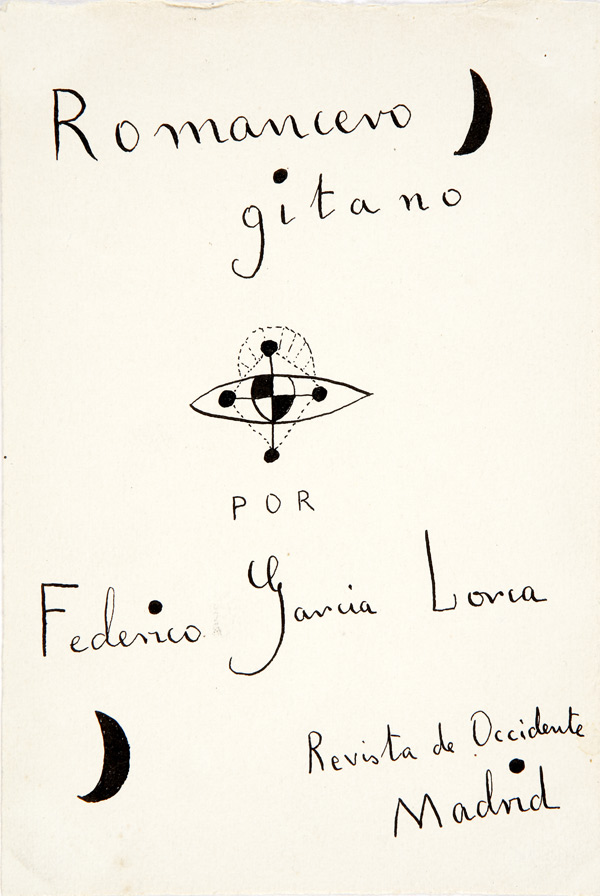 Romancero
gitano
POR
Federico García Lorca
Revista de Occidente
Madrid